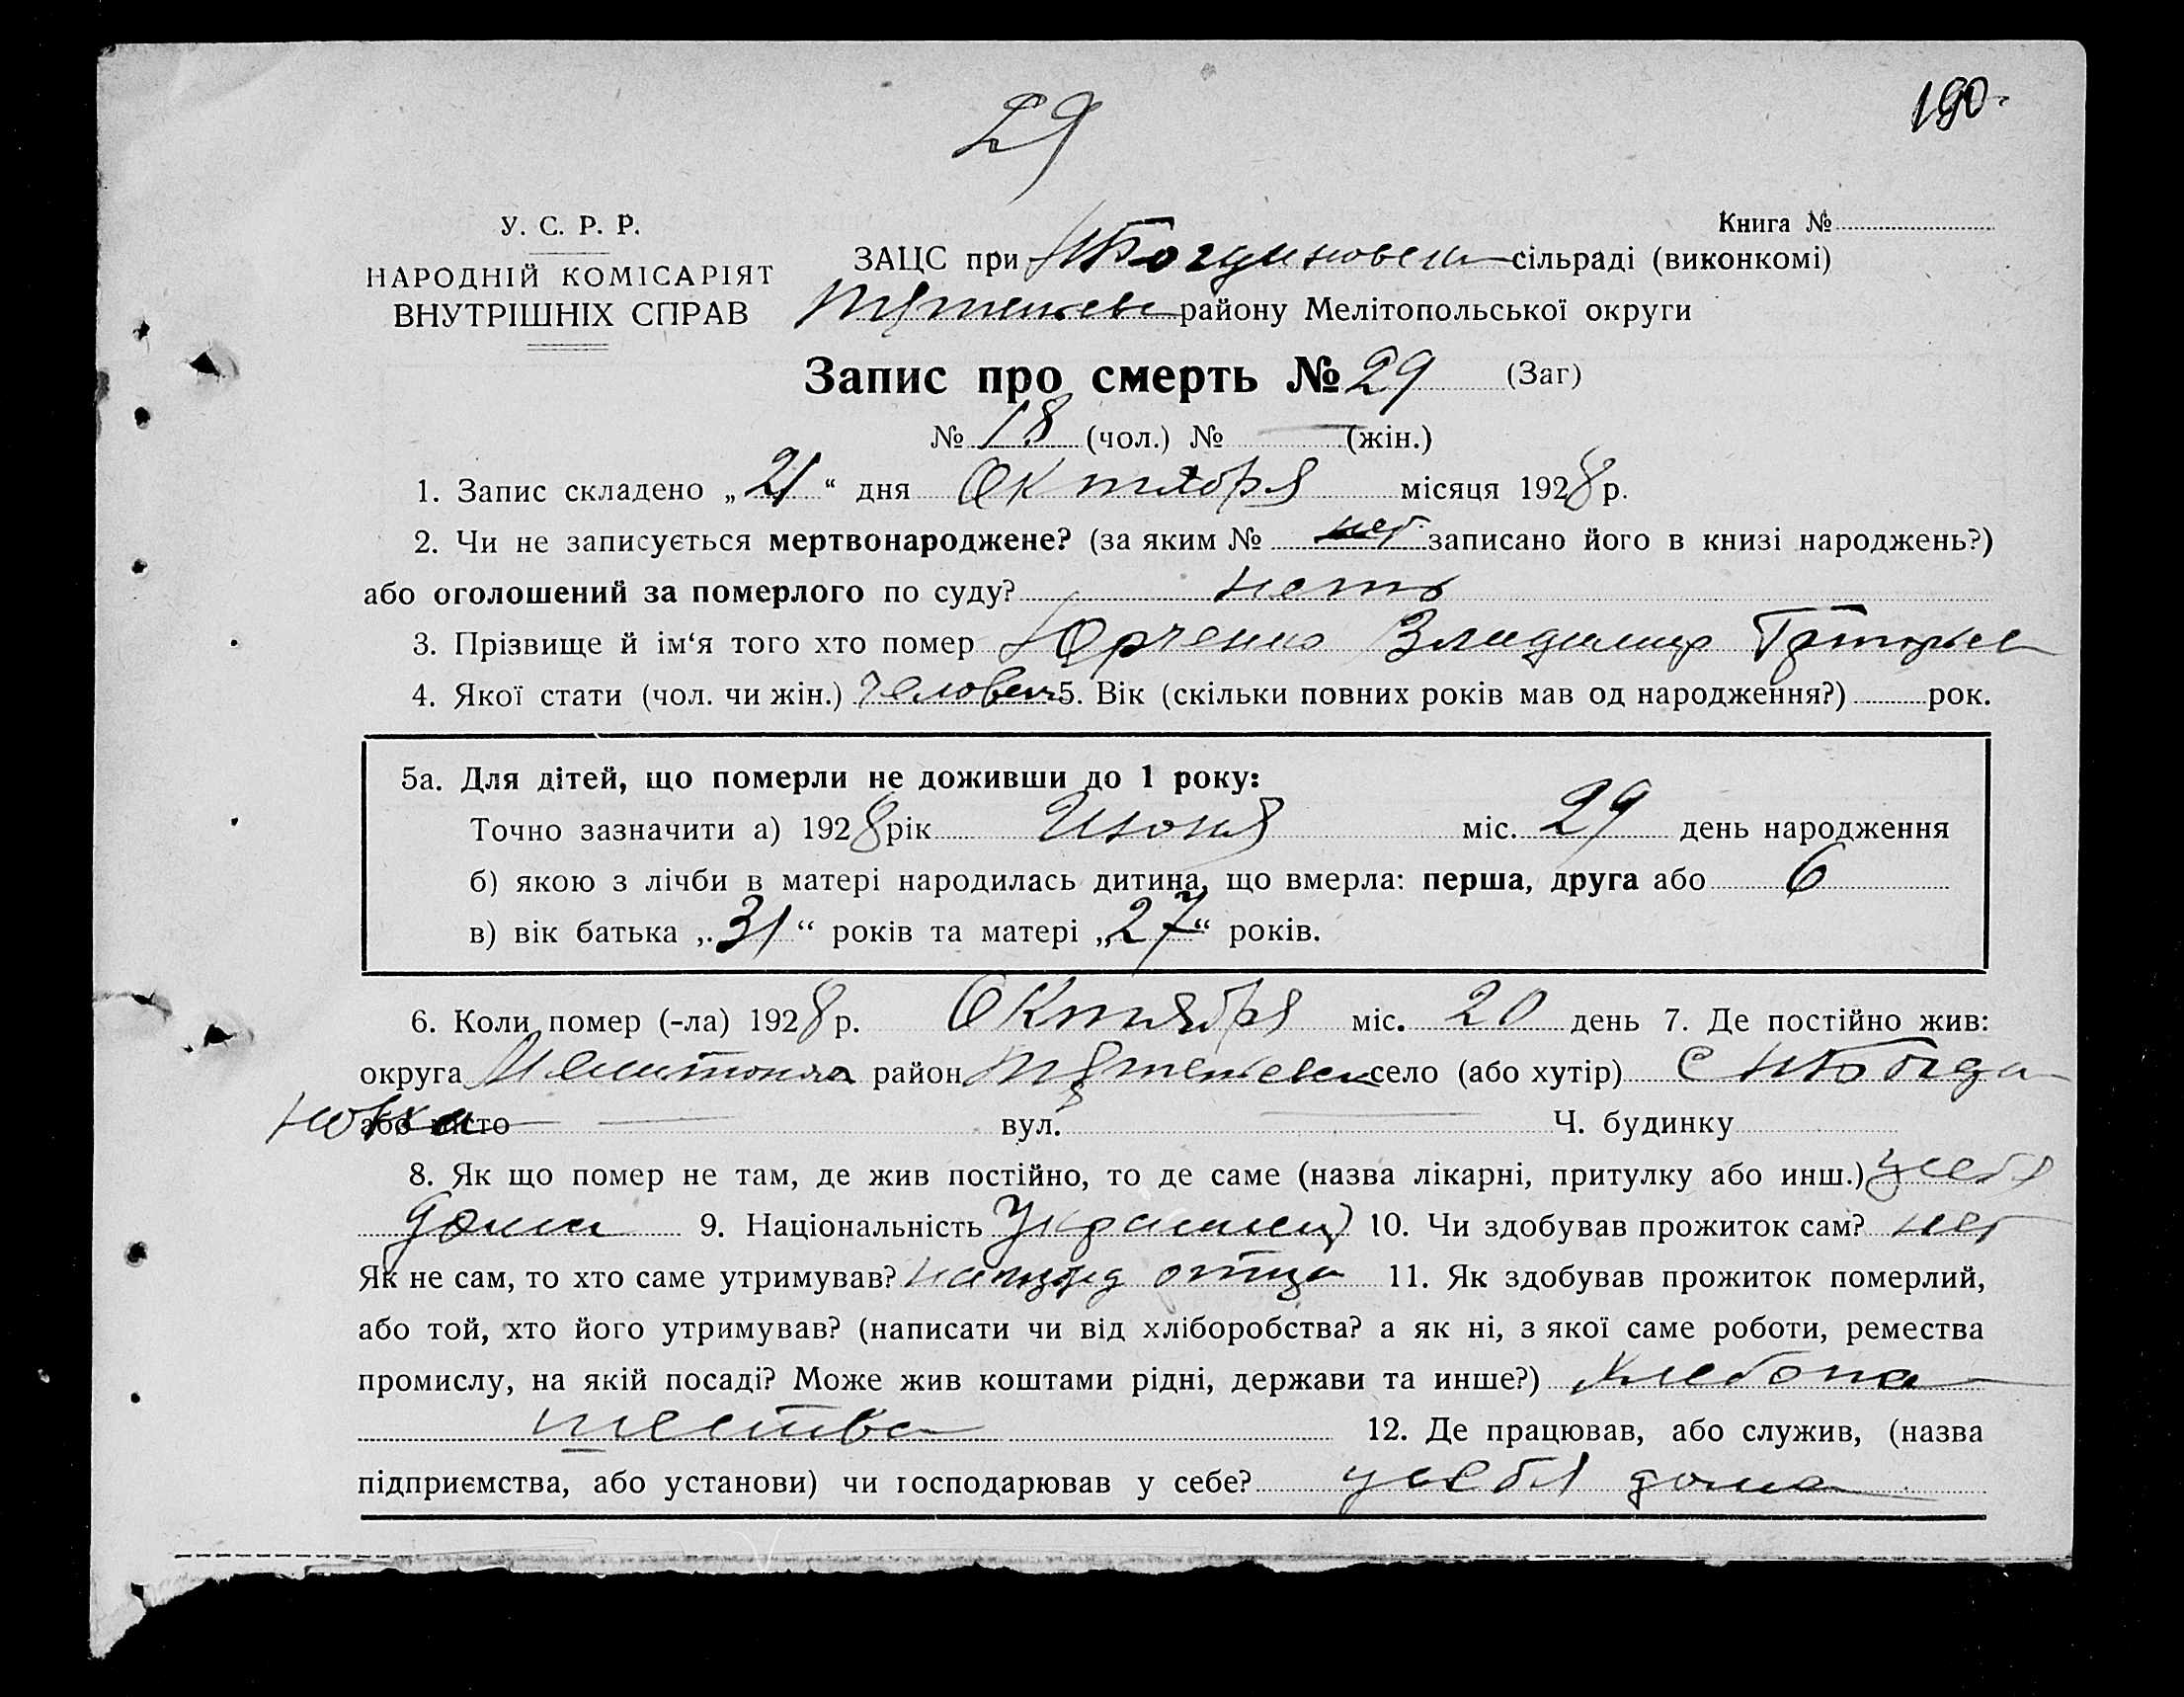 29
190
У. С. Р. Р.
НАРОДНІЙ КОМІСАРІЯТ
ВНУТРІШНІХ СПРАВ
Книга №
ЗАЦС при Н Богдановск сільраді (виконкомі)
району Мелітопольської округи
Запис про смерть № 29 (Заг)
№ 18 (чол.) № — (жін.)
1. Запис складено „21“ дня Октября місяця 1928 р.
2. Чи не записується мертвонароджене? (за яким № нет записано його в книзі народжень?)
або оголошений за померлого по суду? неть
3. Прізвище й ім‘я того хто помер Юрченко Владимир Григорьев
4. Якої стати (чол. чи жін.) Человек 5. Вік (скільки повних років мав од народження?) рок.
5а. Для дітей, що померли не доживши до 1 року:
Точно зазначити а) 1928 рік Июня міс. 29 день народження
б) якою з лічби в матері народилась дитина, що вмерла: перша, друга або 6
в) вік батька „31“ років та матері „27“ років.
6. Коли помер (-ла) 1928 р. Октября міс. 20 день 7. Де постійно жив:
округа Мелитопол район село (або хутір) с Н Богда
новка або місто — вул. — Ч. будинку
8. Як що помер не там, де жив постійно, то де саме (назва лікарні, притулку або инш.) у себя
дома 9. Національність Украинец 10. Чи здобував прожиток сам? нет
Як не сам, то хто саме утримував? отца 11. Як здобував прожиток померлий,
або той, хто його утримував? (написати чи від хліборобства? а як ні, з якої саме роботи, ремества
промислу, на якій посаді? Може жив коштами рідні, держави та инше?) Хлебопа
шества 12. Де працював, або служив, (назва
підприємства, або установи) чи господарював у себе? у себя дома